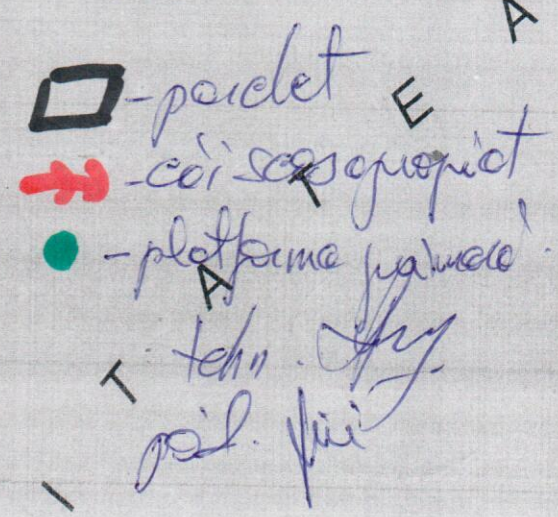 - parchet
- căi scos apropiat
- platforma primară
tehn.
păd.
I T A T E A